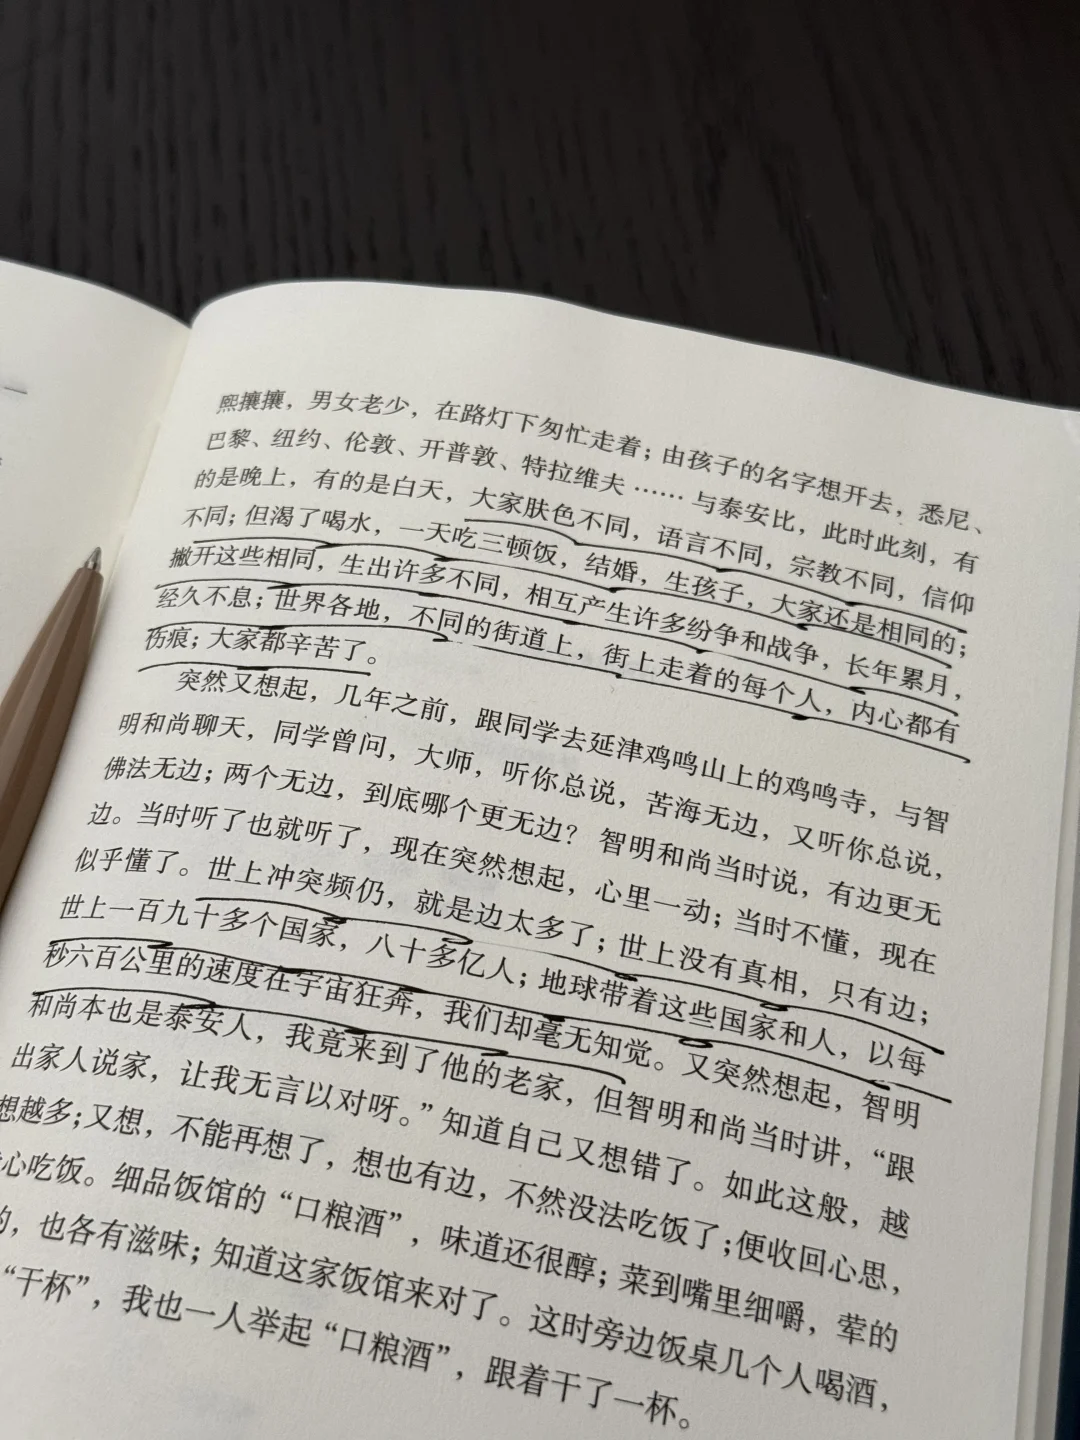 熙攘攘，男女老少，在路灯下匆忙走着；由孩子的名字想开去，悉尼、
巴黎、纽约、伦敦、开普敦、特拉维夫……与泰安比，此时此刻，有
的是晚上，有的是白天，大家肤色不同，语言不同，宗教不同，信仰
不同；但渴了喝水，一天吃三顿饭，结婚，生孩子，大家还是相同的；
撇开这些相同，生出许多不同，相互产生许多纷争和战争，长年累月，
经久不息；世界各地，不同的街道上，街上走着的每个人，内心都有
伤痕；大家都辛苦了。
突然又想起，几年之前，跟同学去延津鸡鸣山上的鸡鸣寺，与智
明和尚聊天，同学曾问，大师，听你总说，苦海无边，又听你总说，
佛法无边；两个无边，到底哪个更无边？智明和尚当时说，有边更无
边。当时听了也就听了，现在突然想起，心里一动；当时不懂，现在
似乎懂了。世上冲突频仍，就是边太多了；世上没有真相，只有边；
世上一百九十多个国家，八十多亿人；地球带着这些国家和人，以每
秒六百公里的速度在宇宙狂奔，我们却毫无知觉。又突然想起，智明
和尚本也是泰安人，我竟来到了他的老家，但智明和尚当时讲，“跟
出家人说家，让我无言以对呀。”知道自己又想错了。如此这般，越
想越多；又想，不能再想了，想也有边，不然没法吃饭了；便收回心思，
心吃饭。细品饭馆的“口粮酒”，味道还很醇；菜到嘴里细嚼，荤的
的，也各有滋味；知道这家饭馆来对了。这时旁边饭桌几个人喝酒，
“干杯”，我也一人举起“口粮酒”，跟着干了一杯。